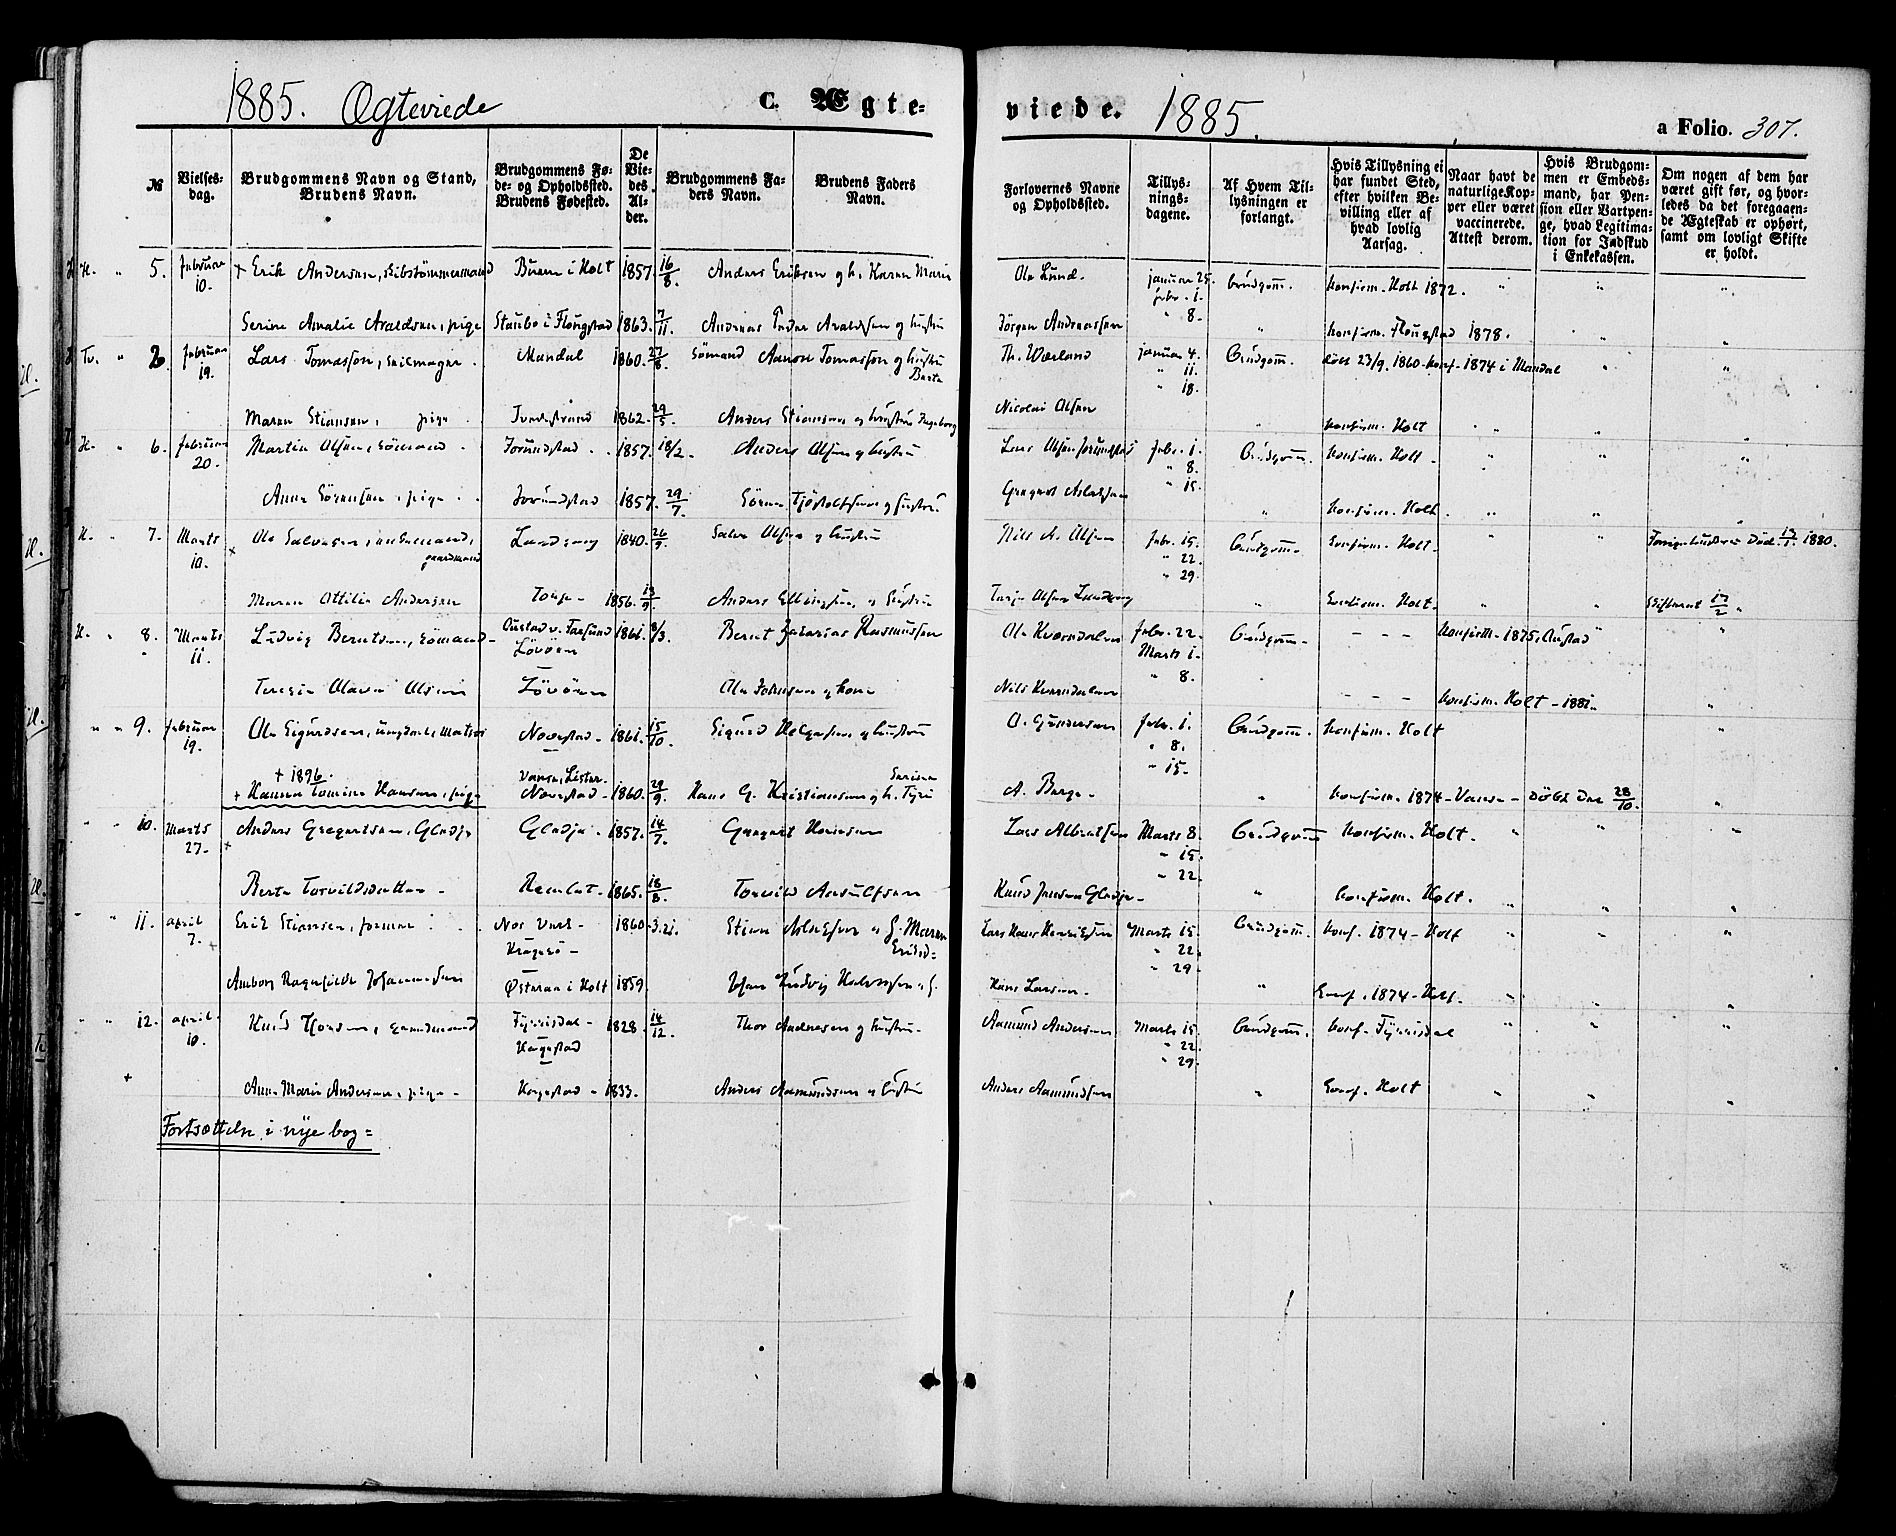 1885. Ægteviede
C. Ægte-
viede. 1885.
a Folio. 307.
№
Vielses-
dag.
Brudgommens Navn og Stand,
Brudens Navn.
Brudgommens Fø-
de- og Opholdssted.
Brudens Fødested.
De
Vie-
des
Al-
der.
Brudgommens Fa-
ders Navn.
Brudens Faders
Navn.
Forlovernes Navne
og Opholdssted.
Tillys-
nings-
dagene.
Af Hvem Til-
lysningen er
forlangt.
Hvis Tillysning ei
har fundet Sted,
efter hvilken Be-
villing eller af
hvad lovlig
Aarsag.
Naar havt de
naturlige Kop-
per eller været
vaccinerede.
Attest derom.
Hvis Brudgom-
men er Embeds-
mand, har Pen-
sion eller Vartpen-
ge, hvad Legitima-
tion for Indskud
i Enkekassen.
Om nogen af dem har
været gift før, og hvor-
ledes da det foregaaen-
de Ægteskab er ophørt,
samt om lovligt Skifte
er holdt.
H. " 5. februar 10. + Erik Andersen, Skibstømmermand Buene i Holt 1857. 16/8. Anders Eriksen og h. Karen Marie Ole Lund. januar 25. Brudgom. konfirm. Holt 1872. " " 
febr. 1.
Serine Amalie Avaldsen, pige Staubø i Flougstad 1863. 7/11. Andreas Peder Avaldsen og hustru Jörgen Andreassen " 8. " konfirm. Flougstad 1878. " "
Tv. " 2. februar 19. Lars Tomassen, Seilmager. Mandal 1860. 27/8. Sømand Aanon Tomassen og hustru Th. Værland januar 4. Brudgom. døbt 23/9. 1860. konf. 1874 i Mandal " "
Berte " 11.
" 18.
Maren Stiansen, pige Tvedestrand 1862. 29/5. Anders Stiansen og hustru Ingeborg Nicolai Olsen " konfirm. Holt " " "
H. " 6. februar 20. Martin Olsen, Sömand Jorundstad 1857. 18/2. Anders Olsen og hustru Lars Olsen Jorundstad febr. 1. Brudgom. konfirm. Holt - " " "
" 8.
Anne Sörensen, pige Jorundstad 1857. 29/7. Sören Tjöstolfsen og hustru Gregert Aslaksen " 15. " konfirm. Holt. " " "
H. " 7. Marts 10. + Ole Salvesen, enkemand, Landvang 1840. 26/9. Salve Olsen og hustru Nils A. Olsen febr. 15. Brudgom. konfirm. Holt. " " Forrige hustru Död. 13/1. 1880.
gaardmand " 22.
" 29.
Maren Ottilie Andersen 1856. 13/9. Anders Ellingsen og hustru Terje Olsen Landvang " konfirm. Holt. " " Skifteatt 17/2.
H. " 8. Marts 11. Ludvig Berntsen, Sømand Oustad v. Farsund 1861. 8/3. Bernt Zakarias Rasmussen Ole Kværndalen febr. 22. Brudgom. - - - konfirm. 1875, Oustad " "
Lövöen Marts 1.
" 8.
Teresie Olava Olsen Lövöen Ole Johnsen og kone Nils Kværndalen - - - konfirm. Holt - 1881. "
" " 9. februar 19. Ole Sigurdsen, ungkarl, Matros Navestad 1861. 15/10. Sigurd Helgesen og hustru O. Gundersen febr. 1. Brudgom. konfirm. Holt
" 8.
+ 1896. Vanse, Lister. " 15.
+ Hanna Tomine Hansen, pige Navestad 1860. 29/9. Hans G. Kristiansen og h. Tyri A. Berge " konfirm. 1874 - Vanse - Döbt den 28/10. "
" " 10. Marts 27. + Anders Gregertsen, Gledje Gledje 1857. 14/7. Gregert Hansen Lars Albretsen Marts 8. Brudgom konfirm. Holt. " " "
" 15.
" 22.
Berte Torvildsdatter 1865. 18/8. Torvild Ansulfsen Knud Jensen Gledje " konfirm. Holt. " " "
" " 11. april 7. + Erik Stiansen, former Næs Værk - 1860. 3.21. Stian Aslaksen og h. Maren Lars Hans Henriksen Marts 15. Brudgom. konf. 1874 - Holt " " "
Kragerö - Eriksd= " 22.
" 29.
Amborg Ragnhilde Johannesen Østeraa i Holt 1859. Johan Ludvig Halvorsen og h. Hans Larsen. " konf. 1874 - Holt. " " "
" " 12. april 10. Knud Thorsen, gaardmand Fyrrisdal - 1828. 14/12. Thor Andresen og hustru Aamund Andersen Marts 15. Brudgom. konf. Fyrrisdal " " "
Hogestad " 22.
" 29.
+ Anne Marie Andersen, pige - Hogestad - 1833. Anders Aamundsen og hustru Anders Aamundsen " konf. Holt " " "
Fortsættelse i nye bog=